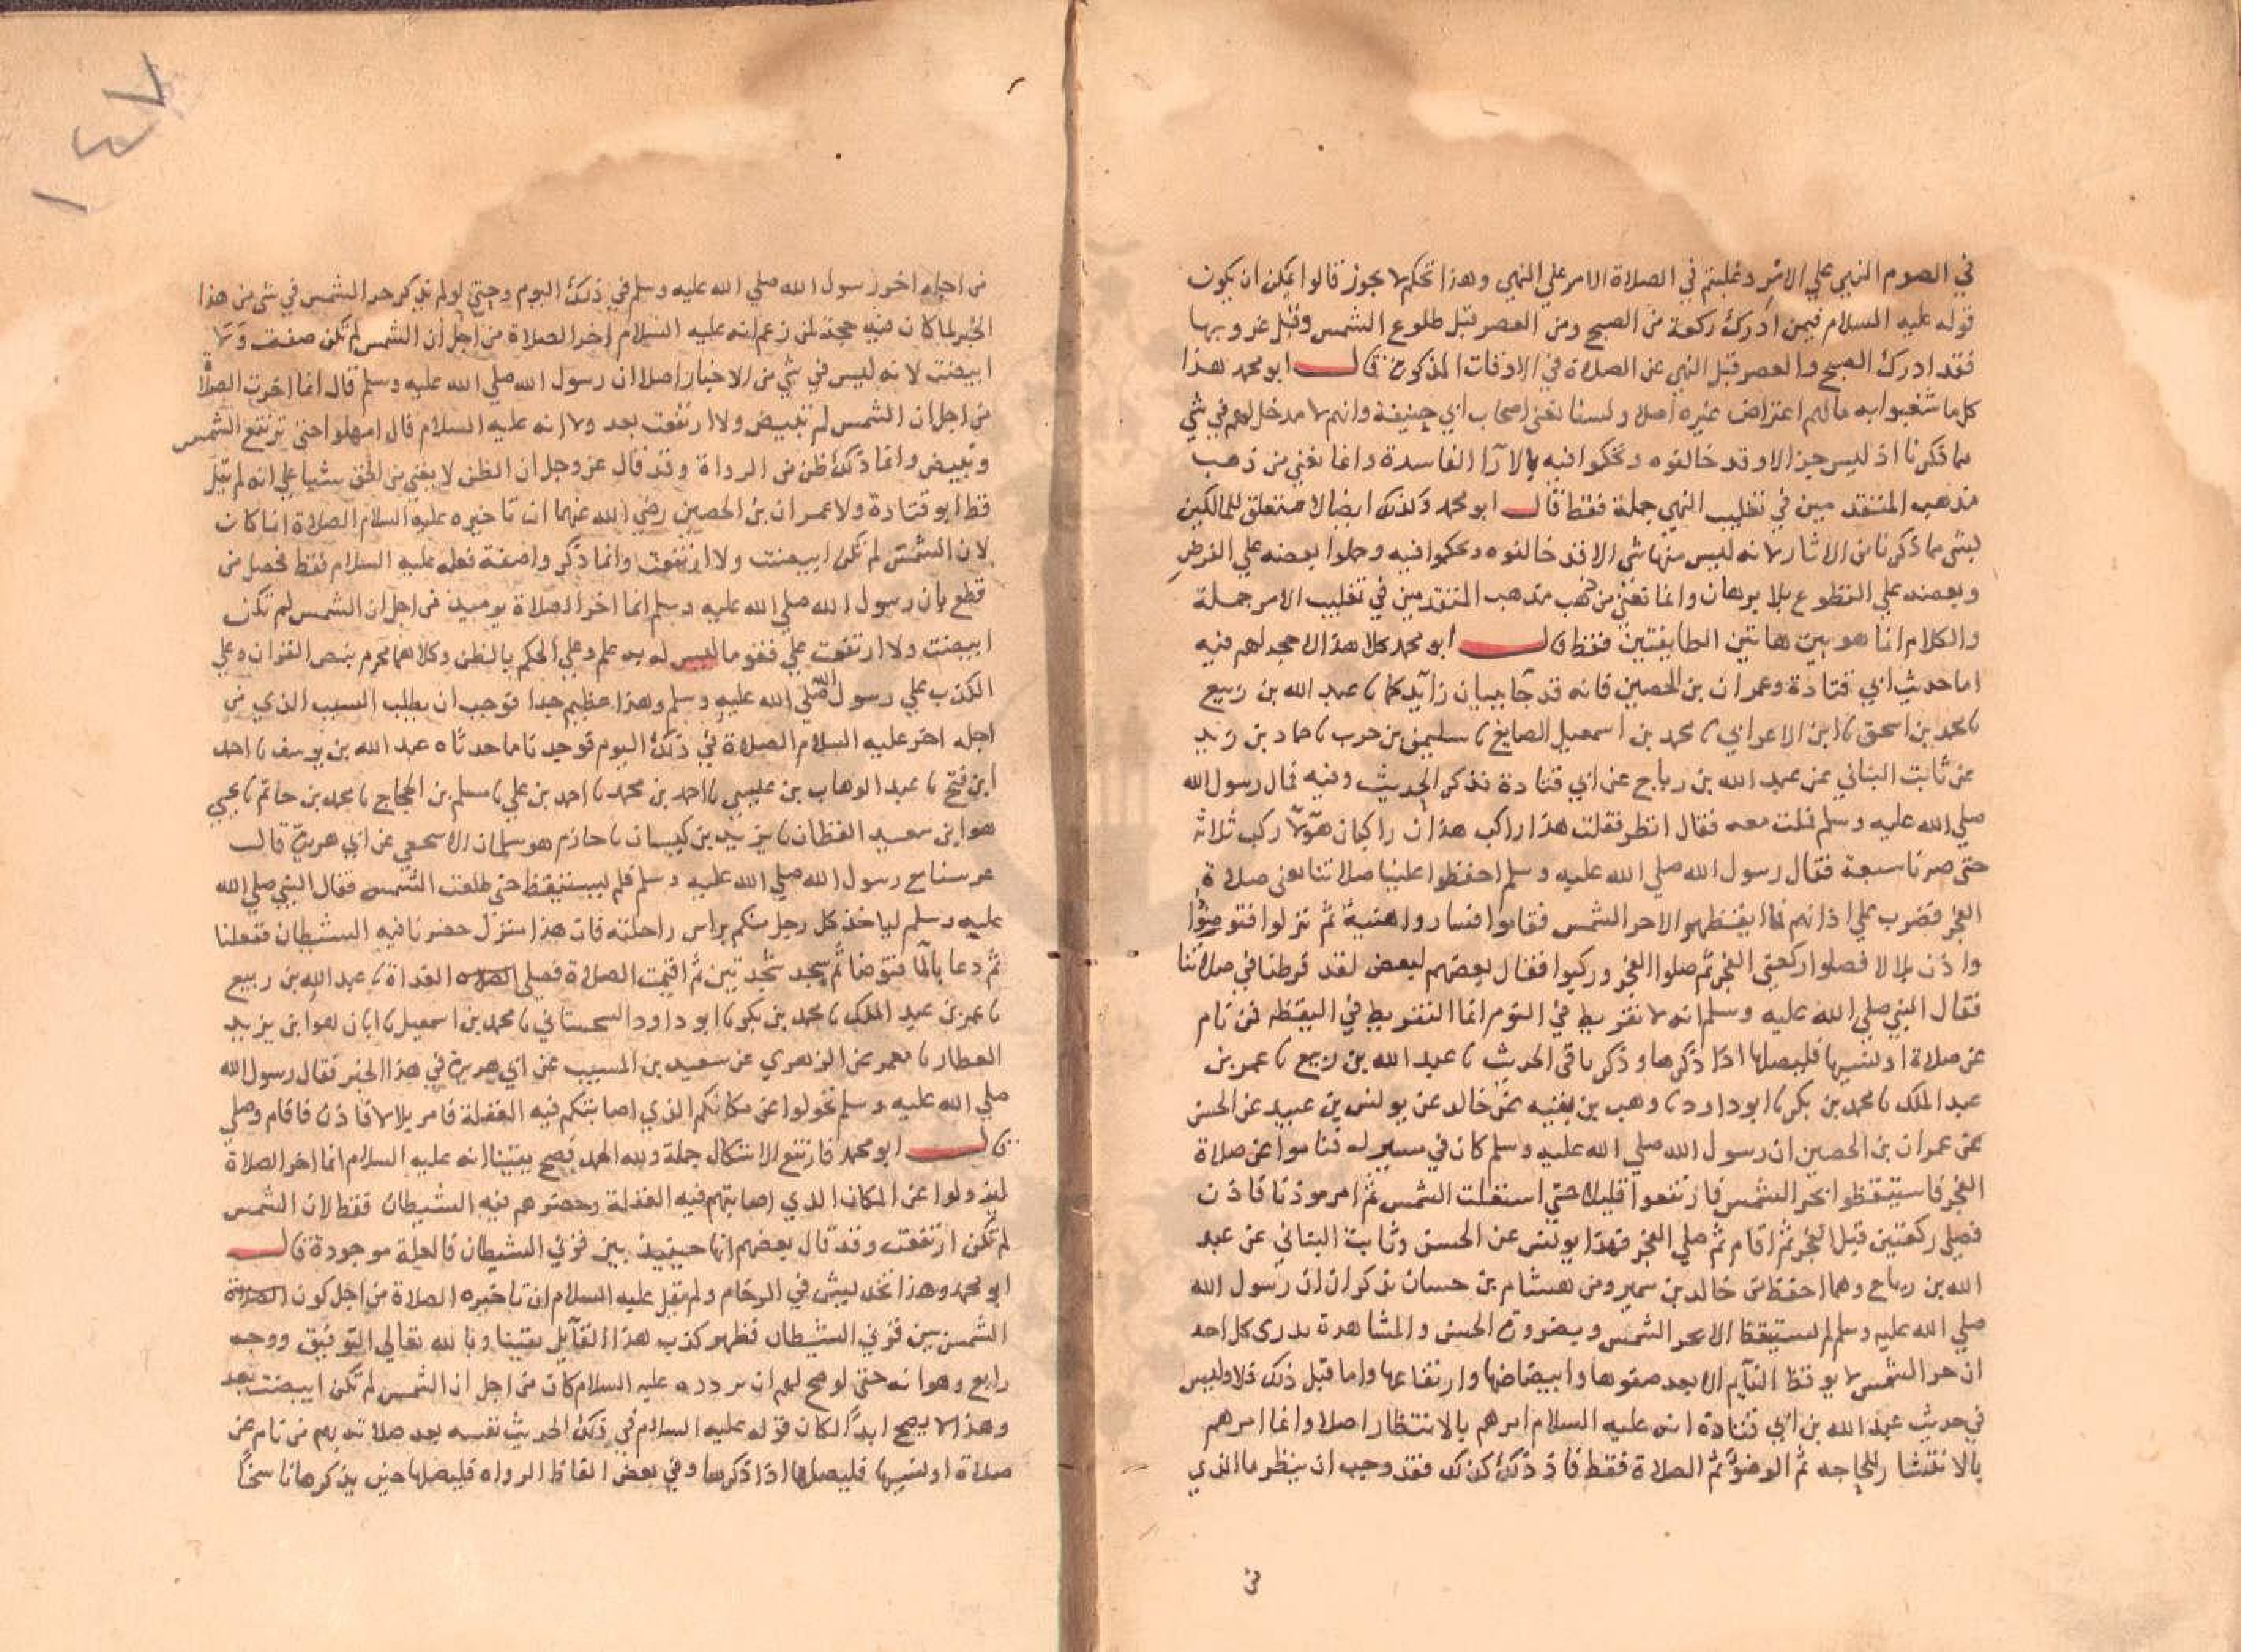 في الصوم النهي علي الامر وغلبتم في الصلاة الامر علي النهي وهذا تحكم لا يجوز قالوا يمكن ان يكون
قوله عليه السلام فيمن ادرك ركعة من الصبح ومن العصر قبل طلوع الشمس وقبل غروبها
فقد ادرك الصبح والعصر قبل النهي عن الصلاة في الاوقات المذكورة قال ابو محمد هذا
كل ما شغبوا به ما لهم اعتراض غيره اصلا ولسنا نعني اصحاب ابي حنيفة وانهم لا مدخل لهم في شي
مما ذكرنا اذ ليس جزء الا وقد خالفوه وتحكموا فيه بالآرا الفاسدة وانما نعني من ذهب
مذهب المتقدمين في تغليب النهي جملة فقط قال ابو محمد وكذلك ايضا لا متعلق للمالكين
بشي مما ذكرنا من الاثار لانه ليس منها شي الا قد خالفوه وتحكموا فيه وحملوا بعضه علي الفرض
وبعضه علي التطوع بلا برهان وانما نعني من ذهب مذهب المتقدمين في تغليب الامر جملة
والكلام انما هو بين هاتين الطايفتين فقط قال ابو محمد كل هذا لا حجة لهم فيه
اما حديث ابي قتادة وعمران بن الحصين فانه قد جا ببيان زايد كما نا عبد الله بن ربيع
نا محمد بن اسحق نا ابن الاعرابي نا محمد بن اسمعيل الصايغ نا سليمن بن حرب نا حماد بن زيد
عن ثابت البناني عن عبد الله بن رباح عن ابي قتادة فذكر الحديث وفيه فمال رسول الله
صلي الله عليه وسلم فملت معه فقال انظر فقلت هذا راكب هذان راكبان هؤلا ركب ثلاثة
حتي صرنا سبعة فقال رسول الله صلي الله عليه وسلم احفظوا علينا صلاتنا يعني صلاة
الفجر فضرب علي اذانهم فما ايقظهم الا حر الشمس فقاموا فساروا هنية ثم نزلوا فتوضؤا
واذن بلال فصلوا ركعتي الفجر ثم صلوا الفجر وركبوا فقال بعضهم لبعض لقد فرطنا في صلاتنا
فقال النبي صلي الله عليه وسلم انه لا تفريط في النوم انما التفريط في اليقظه فمن نام
عن صلاة او نسيها فليصلها اذا ذكرها وذكر باقي الحديث نا عبد الله بن ربيع نا عمر بن
عبد الملك نا محمد بن بكر نا ابو داود نا وهب بن بقيه عن خالد عن يونس بن عبيد عن الحسن
عن عمران بن الحصين ان رسول الله صلي الله عليه وسلم كان في مسير له فناموا عن صلاة
الفجر فاستيقظوا بحر الشمس فارتفعوا قليلا حتي استقلت الشمس ثم امر موذنا فاذن
فصلي ركعتين قبل الفجر ثم اقام ثم صلي الفجر فهذا يونس عن الحسن وثابت البناني عن عبد
الله بن رباح وهما احفظ من خالد بن سمير ومن هشام بن حسان يذكران ان رسول الله
صلي الله عليه وسلم لم يستيقظ الا بحر الشمس وبضرورة الحس والمشاهدة يدري كل احد
ان حر الشمس لا يوقظ النايم الا بعد صفوها وابيضاضها وارتفاعها واما قبل ذلك فلا وليس
في حديث عبد الله بن ابي قتادة انه عليه السلام امرهم بالانتظار اصلا وانما امرهم
بالانتشار للحاجه ثم الوضؤ ثم الصلاة فقط فاذ ذلك كذلك فقد وجب ان ينظر ما الذي
من
١٤٧
من اجله اخر رسول الله صلي الله عليه وسلم في ذلك اليوم وحتي لو لم يذكر حر الشمس في شي من هذا
الخبر لما كان فيه حجة لمن زعم انه عليه السلام اخر الصلاة من اجل ان الشمس لم تكن صفت ولا
ابيضت لانه ليس في شي من الاخبار اصلا ان رسول الله صلي الله عليه وسلم قال انما اخرت الصلاة
من اجل ان الشمس لم تبيض ولا ارتفعت بعد ولا انه عليه السلام قال امهلوا حتي ترتفع الشمس
وتبيض وانما ذلك ظن من الرواة وقد قال عز وجل ان الظن لا يغني من الحق شيا علي انه لم يقل
قط ابو قتادة ولا عمران بن الحصين رضي الله عنهما ان تاخيره عليه السلام الصلاة انما كان
لان الشمس لم تكن ابيضت ولا ارتفعت وانما ذكروا صفة فعله عليه السلام فقط فحصل من
قطع بان رسول الله صلي الله عليه وسلم انما اخر الصلاة يوميذ من اجل ان الشمس لم تكن
ابيضت ولا ارتفعت علي قفو ما ليس له به علم وعلي الحكم بالظن وكلاهما محرم بنص القران وعلي
الكذب علي رسول الله صلي الله عليه وسلم وهذا عظيم جدا فوجب ان يطلب السبب الذي من
اجله اخر عليه السلام الصلاة في ذلك اليوم فوجدنا ما حدثناه عبد الله بن يوسف نا احمد
ابن فتح نا عبد الوهاب بن عيسي نا احمد بن محمد نا احمد بن علي نا مسلم بن الحجاج نا محمد بن حاتم نا يحيي
هو ابن سعيد القطان نا يزيد بن كيسان نا حازم هو سلمان الاسجعي عن ابي هريرة قال
عرسنا مع رسول الله صلي الله عليه وسلم فلم يستيقظ حتي طلعت الشمس فقال النبي صلي الله
عليه وسلم لياخذ كل رجل منكم براس راحلته فان هذا منزل حضرنا فيه الشيطان ففعلنا
ثم دعا بالما فتوضا ثم سجد سجدتين ثم اقيمت الصلاة فصلي الصلاه الغداة نا عبد الله بن ربيع
نا عمر بن عبد الملك نا محمد بن بكر نا ابو داود السجستاني نا محمد بن اسمعيل نا ابان هو ابن يزيد
العطار نا معمر عن الزهري عن سعيد بن المسيب عن ابي هريرة في هذا الخبر فقال رسول الله
صلي الله عليه وسلم تحولوا عن مكانكم الذي اصابتكم فيه الغفلة فامر بلالا فاذن فاقام وصلي
قال ابو محمد فارتفع الاشكال جملة ولله الحمد فصح يقينا انه عليه السلام انما اخر الصلاة
ليزولوا عن المكان الذي اصابتهم فيه الغفلة وحضرهم فيه الشيطان فقط لان الشمس
لم تكن ارتفعت وقد قال بعضهم انها حينيذ بين قرني الشيطان فالعلة موجودة قال
ابو محمد وهذا تخديش في الرخام ولم يقل عليه السلام ان تاخيره الصلاة من اجل كون الصلاة
الشمس بين قرني الشيطان فظهر كذب هذا القايل يقينا وبالله تعالي التوفيق ووجه
رابع وهو انه حتي لو صح لهم ان تردده عليه السلام كان من اجل ان الشمس لم تكن ابيضت بعد
وهذا لا يصح ابدا لكان قوله عليه السلام في ذلك الحديث نفسه بعد صلاته بهم من نام عن
صلاة او نسيها فليصلها اذا ذكرها وفي بعض الفاظ الرواه فليصلها حين يذكرها ناسخا